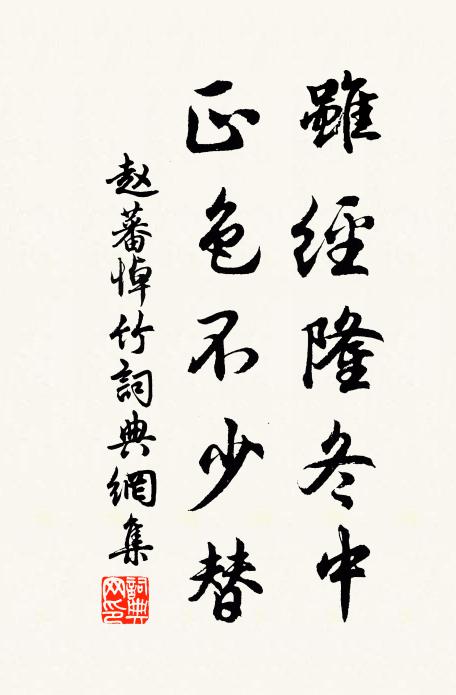 雖經隆冬中
正色不少替
赵蕃悼竹詞典網集
詞典網印